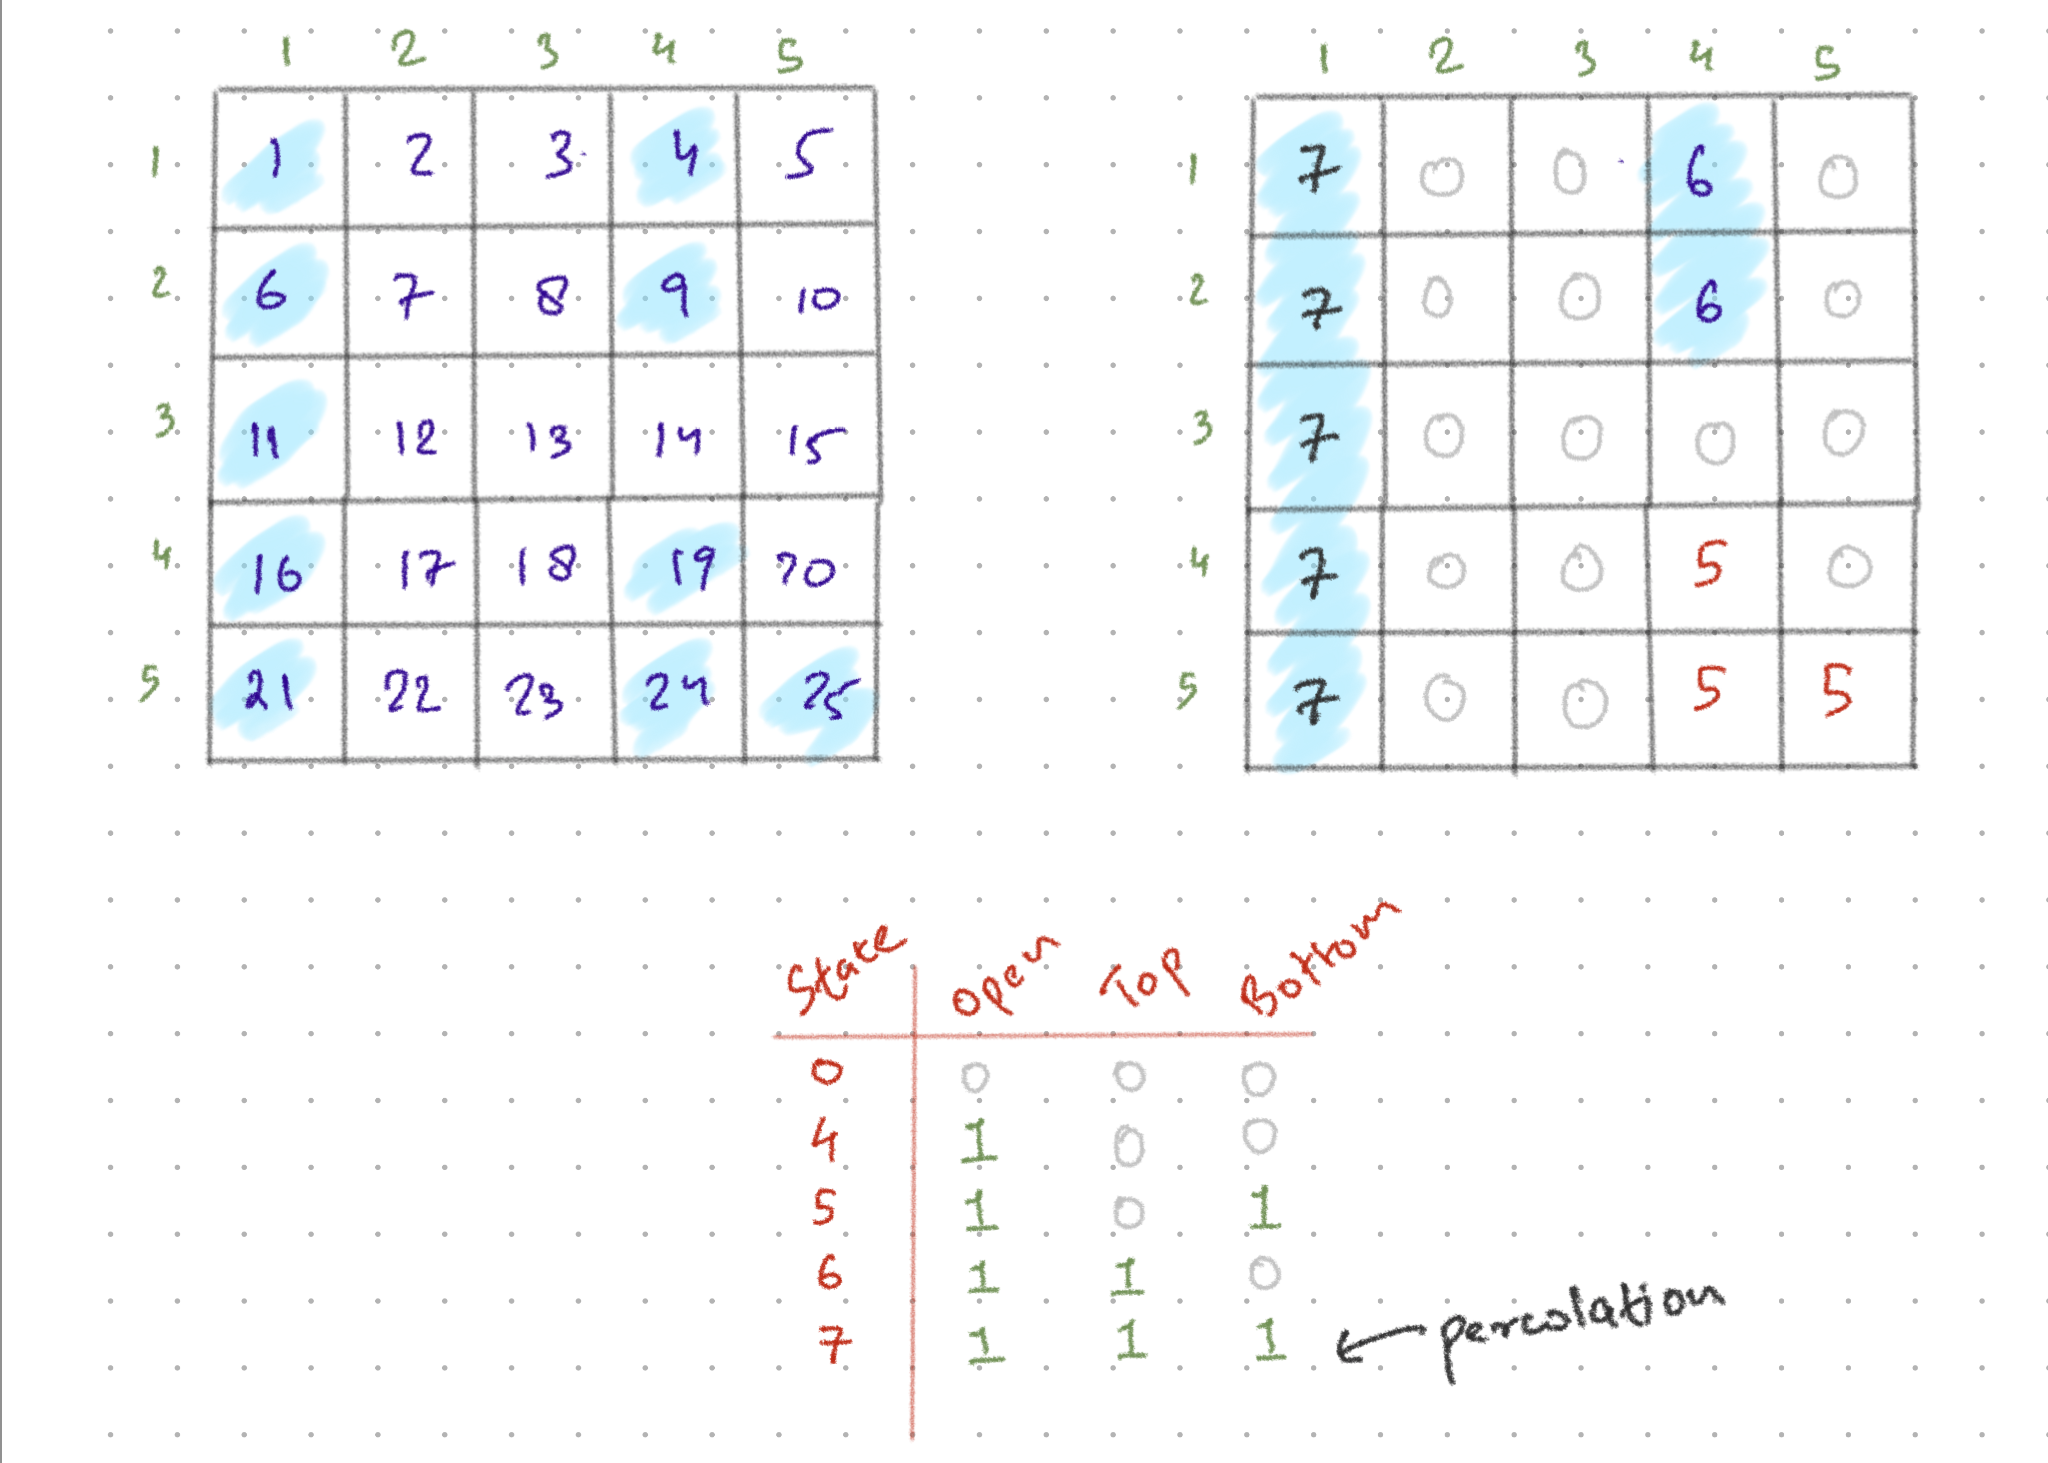 1 2 3 4 5
1 1 2 3 4 5
2 6 7 8 9 10
3 11 12 13 14 15
4 16 17 18 19 20
5 21 22 23 24 25
1 2 3 4 5
1 7 0 0 6 0
2 7 0 0 6 0
3 7 0 0 0 0
4 7 0 0 5 0
5 7 0 0 5 5
State Open Top Bottom
0 0 0 0
4 1 0 0
5 1 0 1
6 1 1 0
7 1 1 1 ← percolation